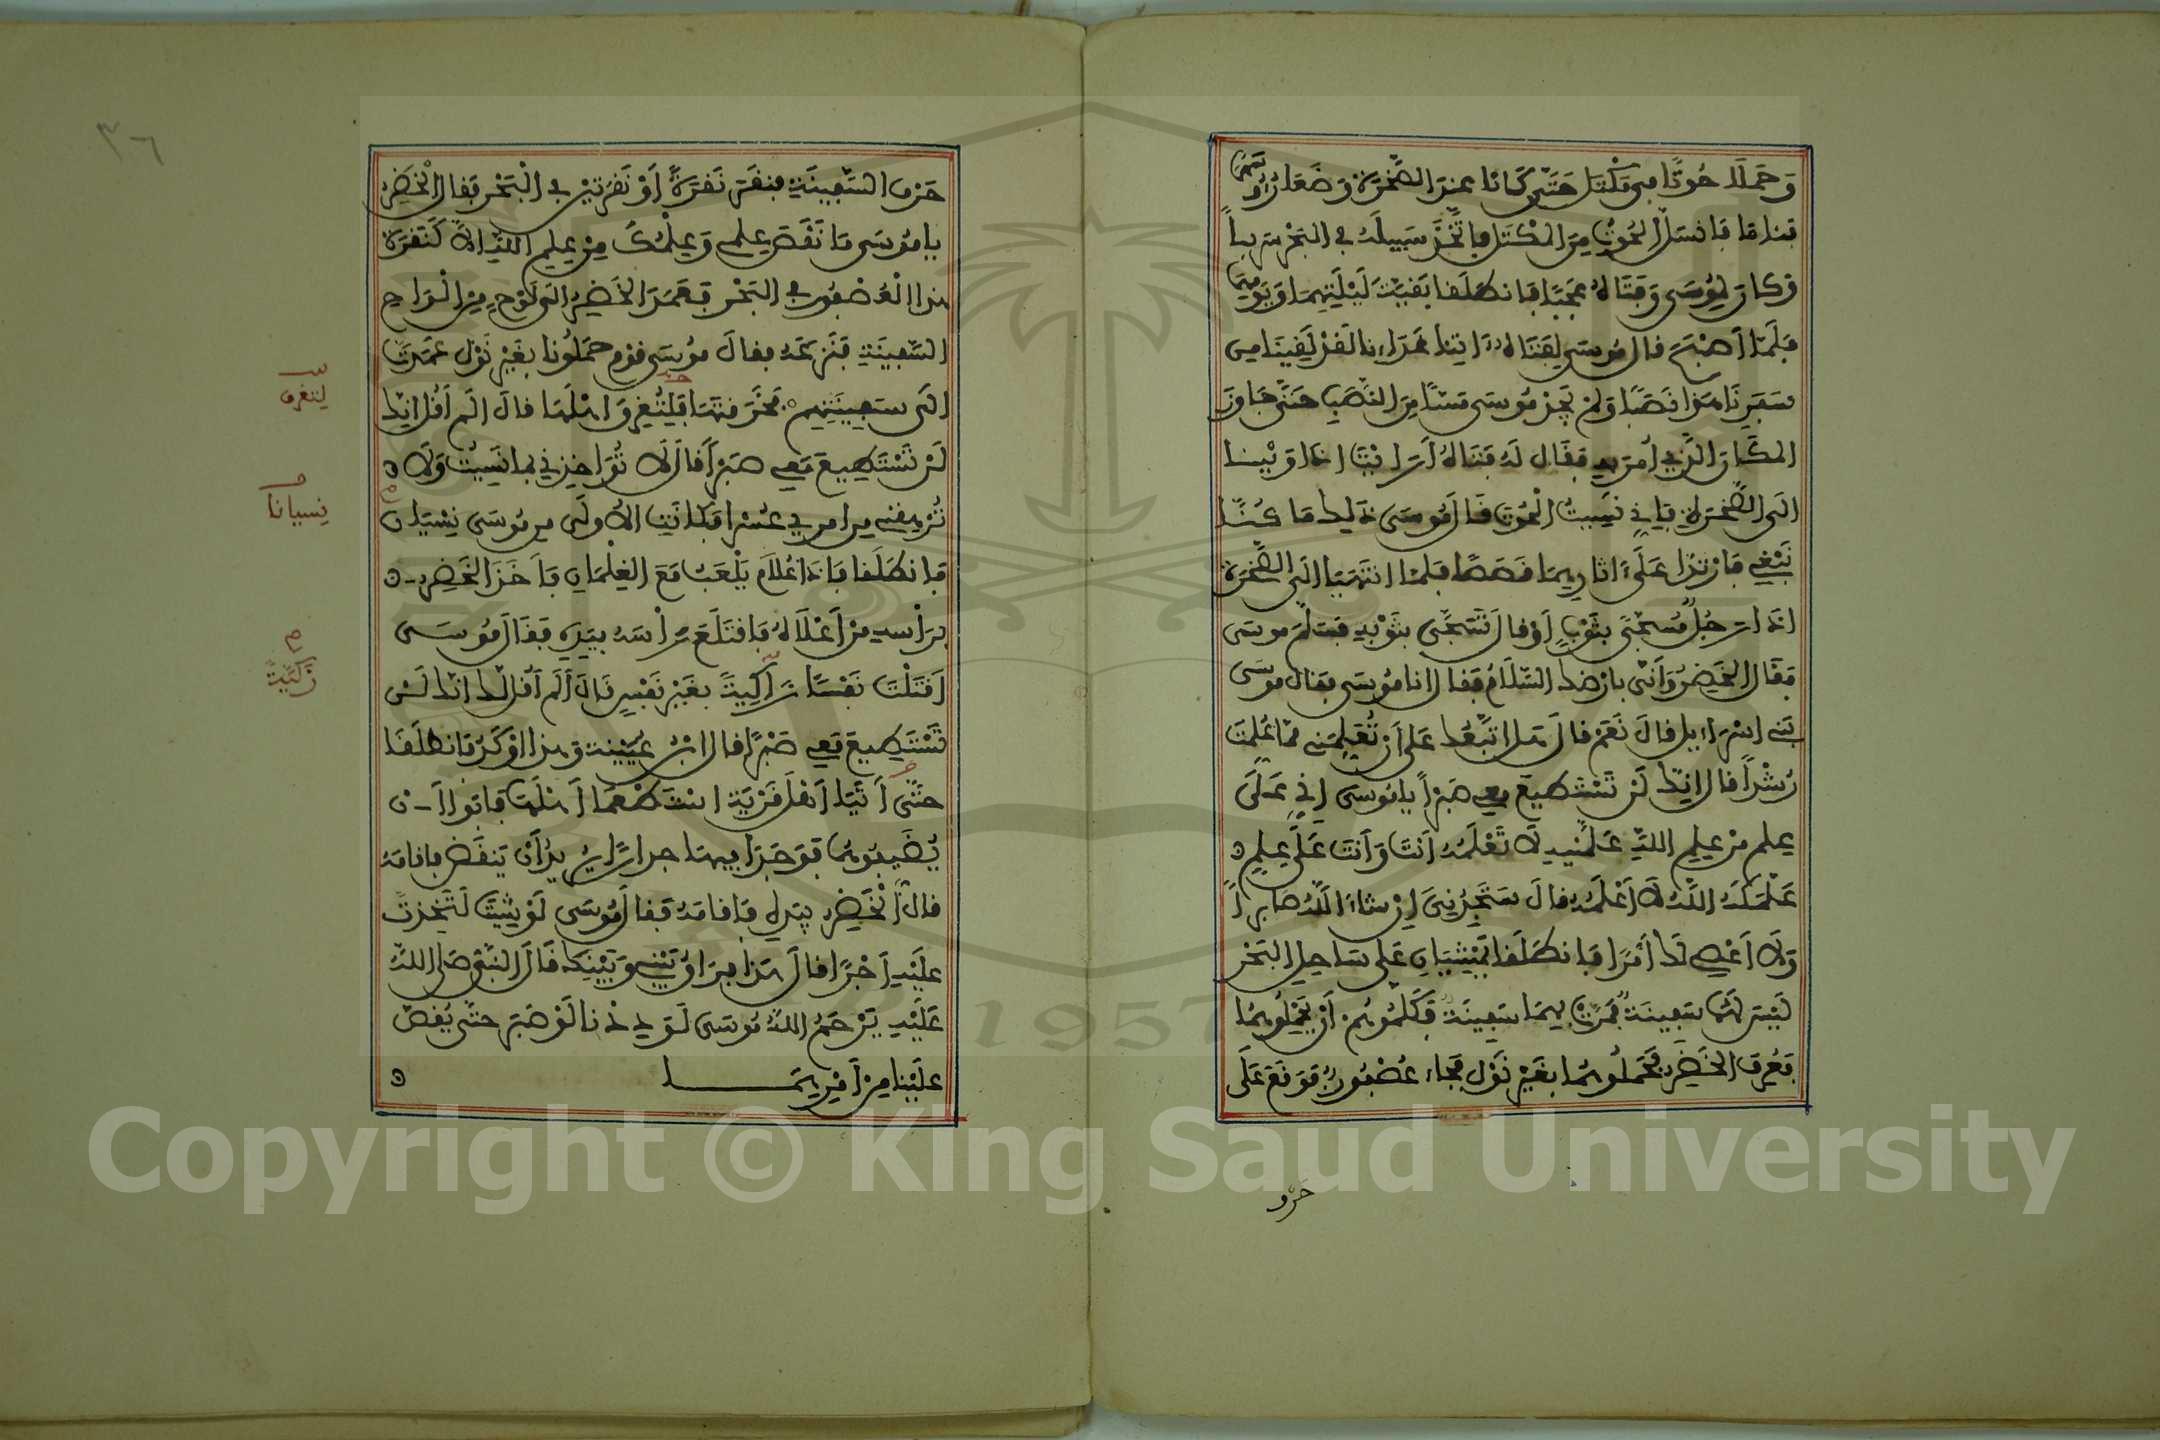 وَحَمَلَا حُوتًا فِي مِكْتَلٍ حَتَّى كَانَا عِنْدَ الصَّخْرَةِ وَضَعَا رُءُوسَهُمَا
فَنَامَا فَانسَلَّ الحُوتُ مِنَ المِكْتَلِ فَاتَّخَذَ سَبِيلَهُ فِي البَحْرِ سَرَباً
وَكَانَ لِمُوسَى وَفَتَاهُ عَجَبًا فَانطَلَقَا بَقِيَّةَ لَيْلَتِهِمَا وَيَوْمِهِمَا
فَلَمَّا أَصْبَحَ قَالَ مُوسَى لِفَتَاهُ ءاتِنَا غَدَاءَنَا لَقَدْ لَقِينَا مِن
سَفَرِنَا هَذَا نَصَبًا وَلَمْ يَجِدْ مُوسَى مَسًّا مِنَ النَّصَبِ حَتَّى جَاوَزَ
المَكَانَ الَّذِي أُمِرَ بِهِ فَقَالَ لَهُ فَتَاهُ أَرَايْتَ إِذَ اوَيْنَا
إِلَى الصَّخْرَةِ فَإِنِّي نَسِيتُ الْحُوتَ قَالَ مُوسَى ذَلِكَ مَا كُنَّا
نَبْغِي فَارْتَدَّا عَلَى ءَاثَارِهِمَا قَصَصًا فَلَمَّا انتَهَيَا إِلَى الصَّخْرَةِ
إِذَا رَجُلٌ مُسَجًّى بِثَوْبٍ أَوْ قَالَ تَسَجَّى بِثَوْبِهِ فَسَلَّمَ مُوسَى
فَقَالَ الخَضِرُ وَأَنَّى بِأَرْضِكَ السَّلَامُ فَقَالَ أَنَا مُوسَى فَقَالَ مُوسَى
بَنِي إِسْرَاءِيلَ قَالَ نَعَمْ قَالَ هَلَ اتَّبِعُكَ عَلَى أَنْ تُعَلِّمَنِي مِمَّا عُلِّمْتَ
رُشْداً قَالَ إِنَّكَ لَنْ تَسْتَطِيعَ مَعِي صَبْراً يَا مُوسَى إِنِّي عَلَى
عِلْمٍ مِنْ عِلْمِ اللَّهِ عَلَّمَنِيهِ لَا تَعْلَمُهُ أَنتَ وَأَنتَ عَلَى عِلْمٍ
عَلَّمَكَهُ اللَّهُ لَا أَعْلَمُهُ قَالَ سَتَجِدُنِيَ إِنْ شَاءَ اللَّهُ صَابِراً
وَلَا أَعْصِي لَكَ أَمْرًا فَانطَلَقَا يَمْشِيَانِ عَلَى سَاحِلِ البَحْرِ
لَيْسَ لَهُمَا سَفِينَةٌ فَمَرَّتْ بِهِمَا سَفِينَةٌ فَكَلَّمُوهُمْ أَنْ يَحْمِلُوهُمَا
فَعُرِفَ الخَضِرُ فَحَمَلُوهُمَا بِغَيْرِ نَوْلٍ فَجَاءَ عُصْفُورٌ فَوَقَعَ عَلَى
حَرْفِ
٣٦
حَرْفِ السَّفِينَةِ فَنَقَرَ نَقْرَةً أَوْ نَقْرَتَيْنِ فِي الْبَحْرِ فَقَالَ الْخَضِرُ
يَا مُوسَى مَا نَقَصَ عِلْمِي وَعِلْمُكَ مِنْ عِلْمِ اللَّهِ إِلَّا كَنَقْرَةِ
هَذَا الْعُصْفُورِ فِي البَحْرِ فَعَمَدَ الخَضِرُ إِلَى لَوْحٍ مِنْ أَلْوَاحِ
السَّفِينَةِ فَنَزَعَهُ فَقَالَ مُوسَى قَوْمٌ حَمَلُونَا بِغَيْرِ نَوْلٍ عَمَدتَّ
إِلَى سَفِينَتِهِمْ فَخَرَقْتَهَا لِتُغْرِقَ أَهْلَهَا قَالَ أَلَمَ اقُل انَّكَ
لَنْ تَسْتَطِيعَ مَعِي صَبْراً قَالَ لَا تُؤَاخِذْنِي بِمَا نَسِيتُ وَلَا
تُرْهِقْنِي مِنْ أَمْرِي عُسْراً فَكَانَتِ الْأُولَى مِن مُوسَى نِسْيَان
فَانطَلَقَا فَإِذَا غُلَامٌ يَلْعَبُ مَعَ الغِلْمَانِ فَأَخَذَ الخَضِرُ
بِرَأْسِهِ مِنْ أَعْلَاهُ فَاقْتَلَعَ رَأْسَهُ بِيَدِهِ فَقَالَ مُوسَى
أَقَتَلْتَ نَفْسًا زَاكِيَةً بِغَيْرِ نَفْسٍ قَالَ أَلَمَ اقُل لَّكَ إِنَّكَ لَنْ
تَسْتَطِيعَ مَعِي صَبْرًا قَالَ ابْنُ عُيَيْنَةَ وَهَذَا أَوْكَدُ فَانطَلَقَا
حَتَّى أَتَيَا أَهْلَ قَرْيَةٍ اسْتَطْعَمَا أَهْلَهَا فَأَبَوْا أَنْ
يُضَيِّفُوهُمَا فَوَجَدَا فِيهَا جِدَاراً يُرِيدُ أَنْ يَنقَضَّ فَأَقَامَهُ
قَالَ الْخَضِرُ بِيَدِهِ فَأَقَامَهُ فَقَالَ مُوسَى لَوْ شِئْتَ لَتَّخَذتَّ
عَلَيْهِ أَجْرًا قَالَ هَذَا فِرَاقُ بَيْنِي وَبَيْنِكَ قَالَ النَّبِيُّ صَلَّى اللَّهُ
عَلَيْهِ يَرْحَمُ اللَّهُ مُوسَى لَوَدِدْنَا لَوْ صَبَرَ حَتَّى يُقَصَّ
عَلَيْنَا مِنْ أَمْرِهِمَا
لتغرق
نِسيانا
زَكِيَّةً
1957
Copyright © King Saud University